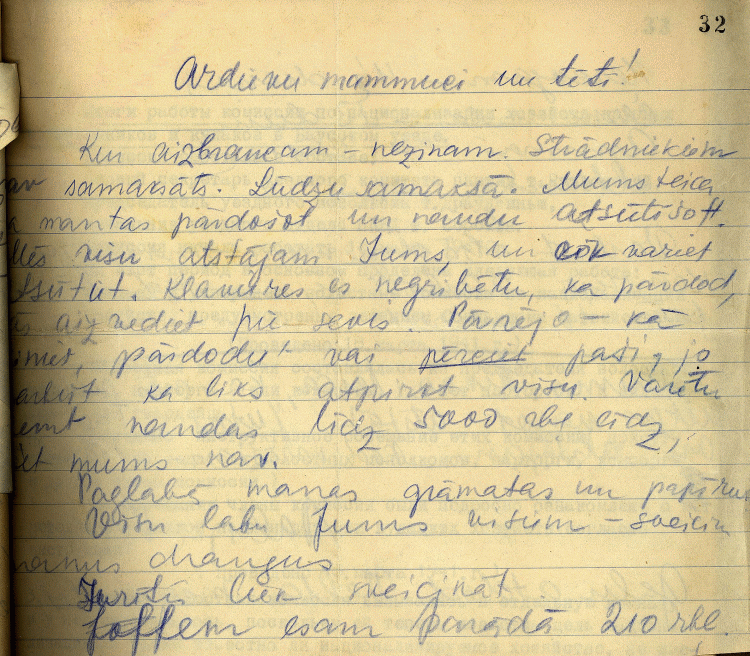 32
Ardievu mammuci un tēti!
Kur aizbraucam – nezinam. Strādniekiem
nav samaksāts. Lūdzu samaksā. Mums teica
mantas pārdošot un naudu atsūtīšot.
Mēs visu atstājam Jums, un cik variet
atsūtat. Klavieres es negribētu, ka pārdod,
aizvediet pie sevis. Pārējo – kā
ziniet, pārdodiet vai pērciet paši, jo
varbūt ka liks atpirkt visu. Varētu
ņemt naudas līdz 5000 rbļ līdz,
bet mums nav.
Paglabā manas grāmatas un papīrus
Visu labu Jums visiem – sveicin
manus draugus
Juritis liek sveicināt.
esam parādā 210 rbl.